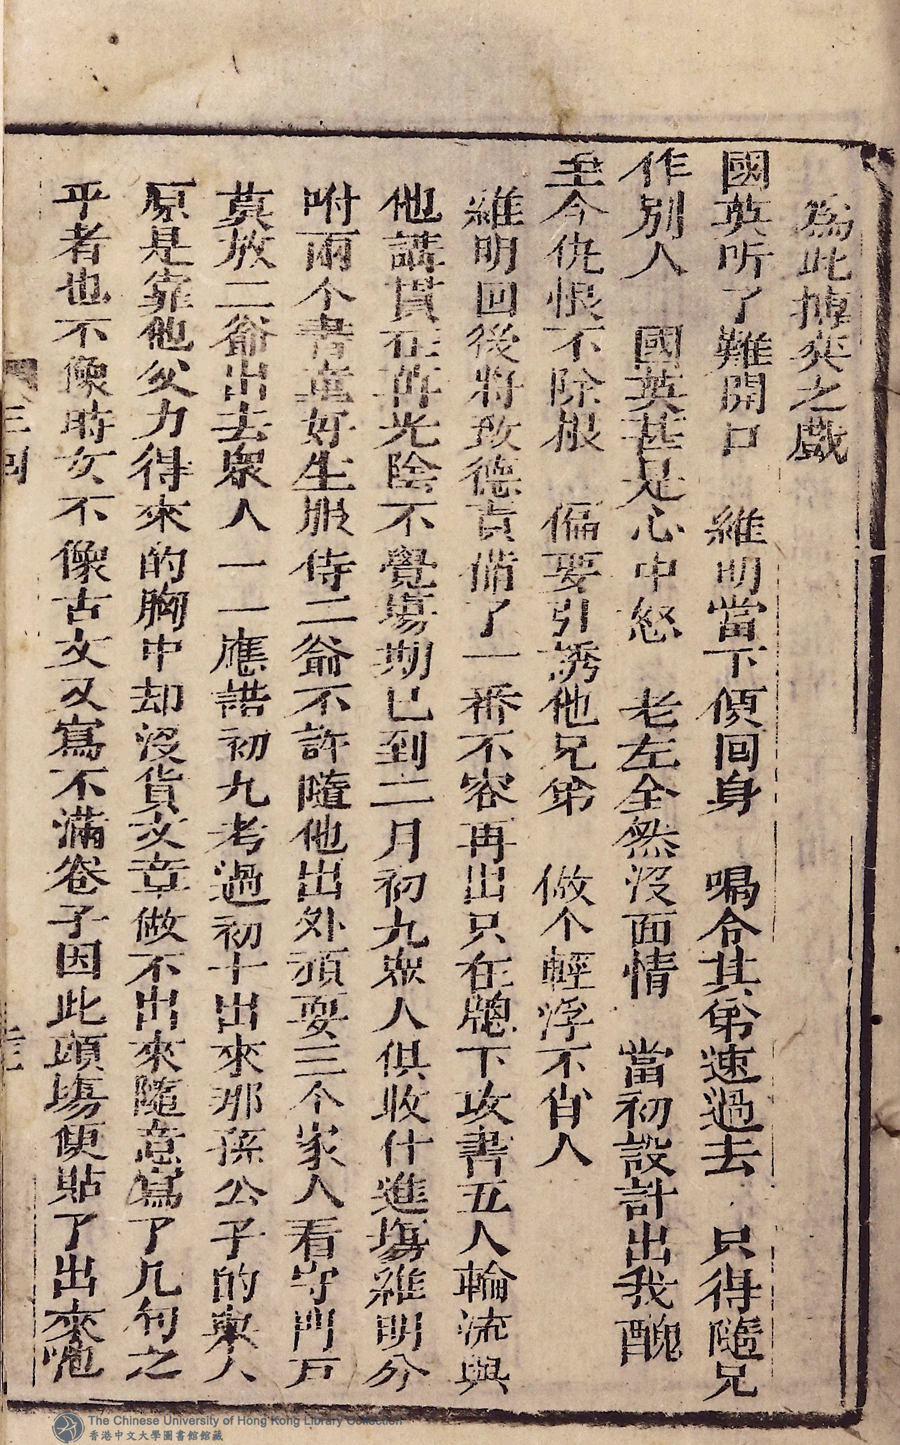 為此摴奕之戲
國英听了難開口　維明當下便回身　喝令其弟速過去　只得隨兄
作別人　國英甚是心中怒　老左全然没面情　當初設計出我醜
至今仇恨不除根　偏要引誘他兄弟　做个輕浮不肖人
維明回後將致德責備了一番不容再出只在牕下攻書五人輪流與
他講貫在苒光陰不覺塲期已到二月初九衆人俱收什進塲維明分
咐兩个書童好生服侍二爺不許隨他出外頑耍三个家人看守門戸
莫放二爺出去衆人一一應諾初九考過初十出來那孫公子的舉人
原是靠他父力得來的胸中却沒貨文章做不出來隨意寫了几句之
乎者也不像時文不像古文又寫不滿卷子因此頭塲便貼了出來他
三囘
The Chinese University of Hong Kong Library Collection
香港中文大學圖書館館藏